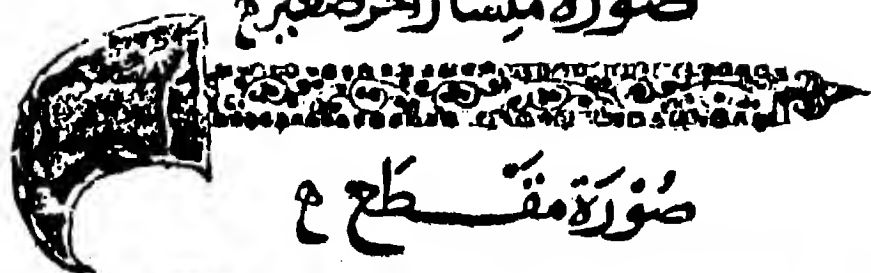 صُوْرَةُ مِنْشَارٍ اٰخَرَ صَغِيْرٍ ح
صُوْرَةُ مَقْطَعٍ ح